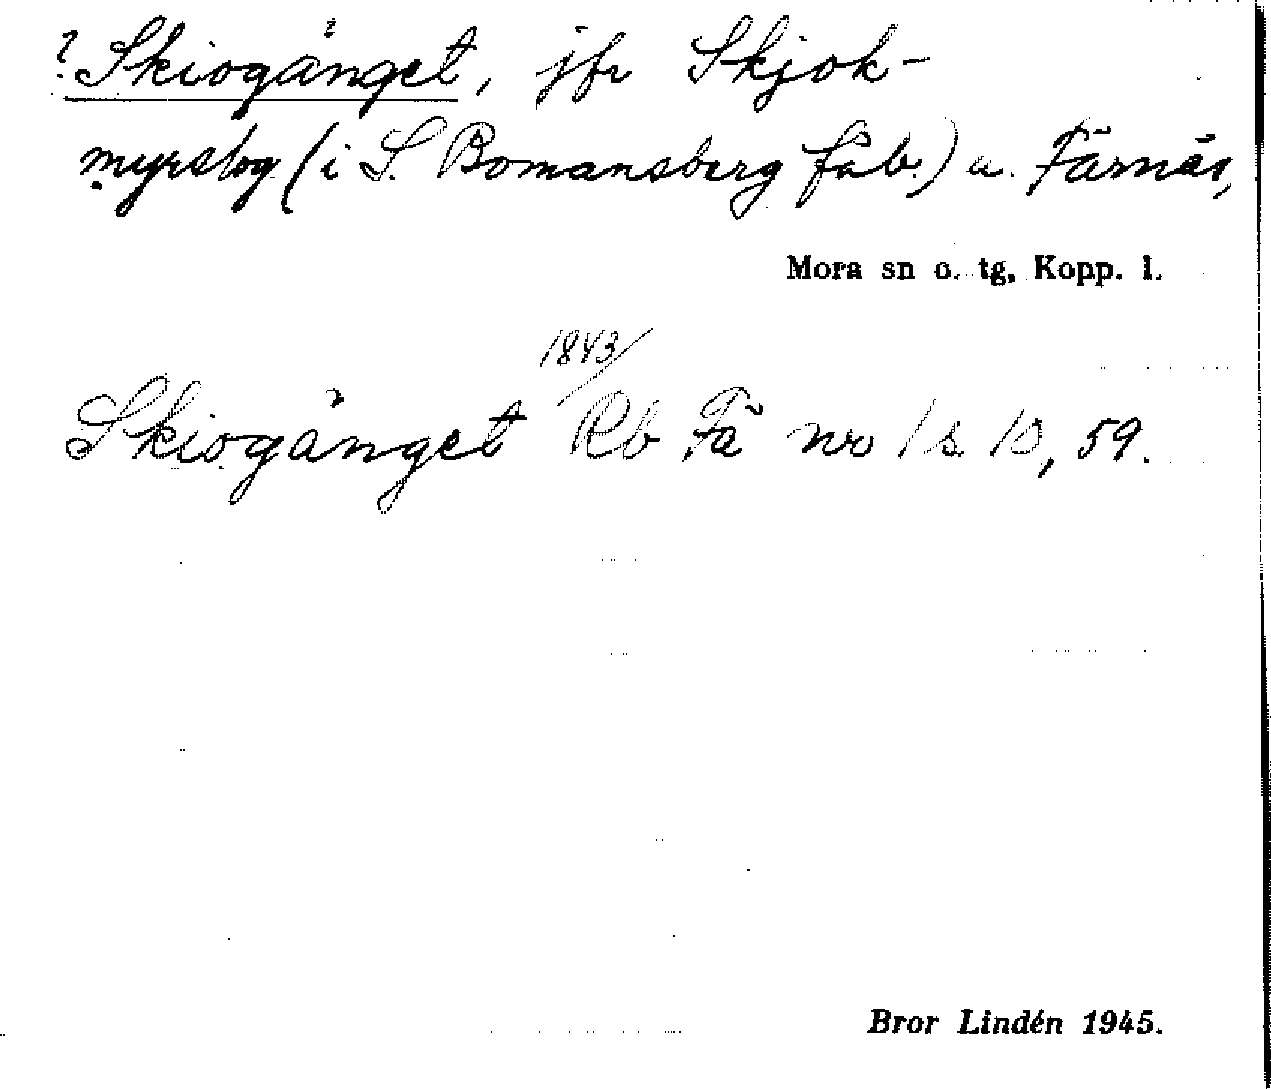 ? Skiogånget, jfr Skjok-
myrslog (i S. Bomansberg fäb.) u. Färnäs,
Mora sn o. tg, Kopp. l.
1843/
Skiogånget Rb Fä nr 1 s. 10, 59.
Bror Lindén 1945.